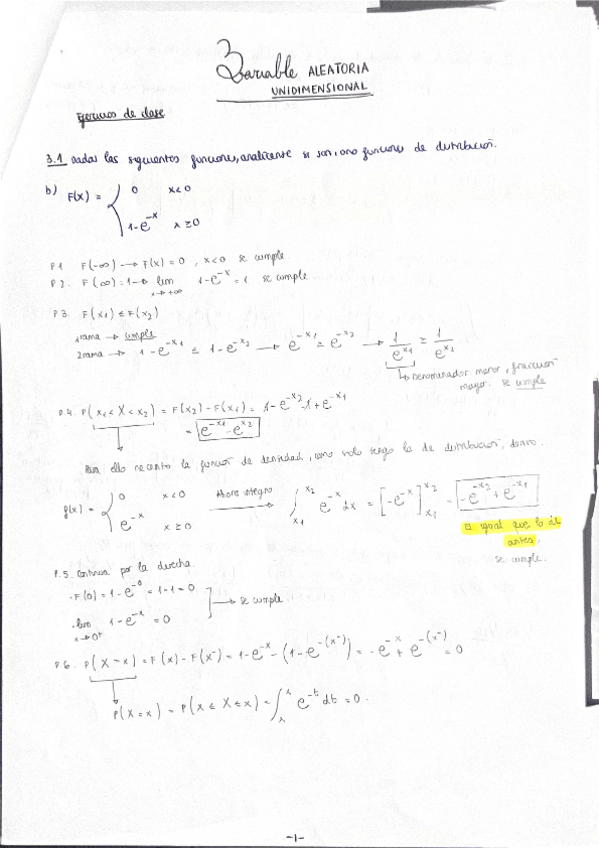 3 Variable ALEATORIA
UNIDIMENSIONAL
Ejercicios de clase
3.1 Dadas las siguientes funciones, analícense si son, o no funciones de distribución.
b) F(x) = { 0 x<0
1-e^{-x} x≥0
P.1 F(-∞) → F(x) = 0 , x<0 se cumple.
P.2. F(∞)=1 → lim_{x→+∞} 1-e^{-x} = 1 se cumple.
P.3. F(x₁) ≤ F(x₂)
1 rama → cumple
2 rama → 1-e^{-x₁} ≤ 1-e^{-x₂} → e^{-x₁} ≥ e^{-x₂} → 1/e^{x₁} ≥ 1/e^{x₂}
↳ Denominador menor, fracción
mayor. Se cumple
P.4. P(x₁<X<x₂) = F(x₂)-F(x₁) = 1-e^{-x₂}-1+e^{-x₁}
= e^{-x₁}-e^{-x₂}
Para ello necesito la función de densidad, como solo tengo la de distribución, derivo.
f(x) = { 0 x<0
e^{-x} x≥0
Ahora integro → ∫_{x₁}^{x₂} e^{-x} dx = [-e^{-x}]_{x₁}^{x₂} = -e^{-x₂}+e^{-x₁}
Es igual que lo de
antes.
Se cumple.
P.5. Continua por la derecha.
·F(0)=1-e^{-0} = 1-1=0
·lim_{x→0⁺} 1-e^{-x} = 0
→ se cumple
P.6. P(X=x) = F(x)-F(x⁻) = 1-e^{-x}-(1-e^{-(x⁻)}) = -e^{-x}+e^{-(x⁻)} = 0
P(X=x) = P(x≤X≤x) = ∫_x^x e^{-t} dt = 0.
-1-